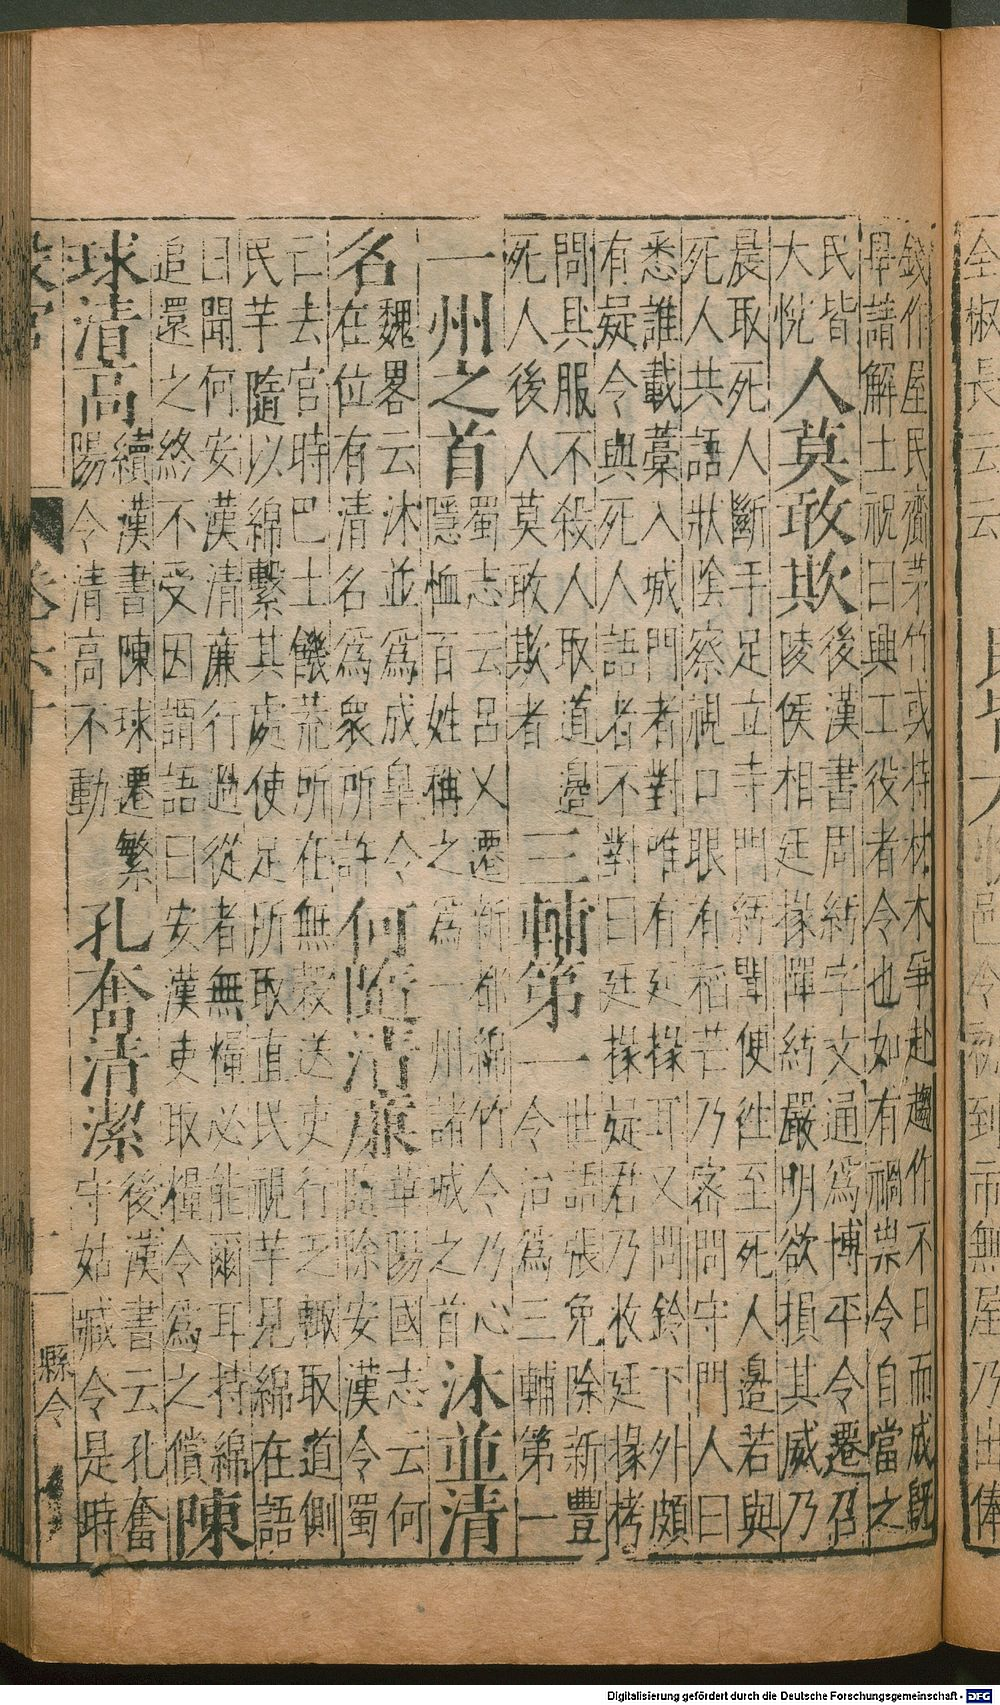 錢作屋民齎茅竹或持材木爭赴趨作不日而成既
畢請解土祝曰興工役者令也如有禍祟令自當之
民皆
大悅
人莫敢欺
後漢書周紡字文通爲博平令遷召
陵侯相廷掾憚紡嚴明欲損其威乃
晨取死人斷手足立寺門紡聞使往至死人邊若與
死人共語狀陰察視口眼有稻芒乃密問守門人曰
悉誰載藁入城門者對唯有廷掾耳又問鈴下外頗
有疑令與死人語者不對曰廷掾疑君乃收廷掾栲
問具服不殺人取道邊
死人後人莫敢欺者
三輔第一
世語張免除新豐
令治爲三輔第一
一州之首
蜀志云呂乂遷新都綿竹令乃心
隱恤百姓稱之爲一州諸城之首
沐並清
名
魏畧云沐並爲成臯令
在位有清名爲衆所許
何隨清廉
華陽國志云何
隨除安漢令蜀
亡去官時巴土饑荒所在無穀送吏行乏輒取道側
民芋隨以綿繫其處使足所取直民視芋見綿在語
曰聞何安漢清廉行過從者無糧必能爾耳持綿
追還之終不受因謂語曰安漢吏取糧令爲之償
陳
球清高
續漢書陳球遷繁
陽令清高不動
孔奮清潔
後漢書云孔奮
守姑臧令是時
縣令
全椒長云云
到市無屋乃出俸
Digitalisierung gefördert durch die Deutsche Forschungsgemeinschaft - DFG